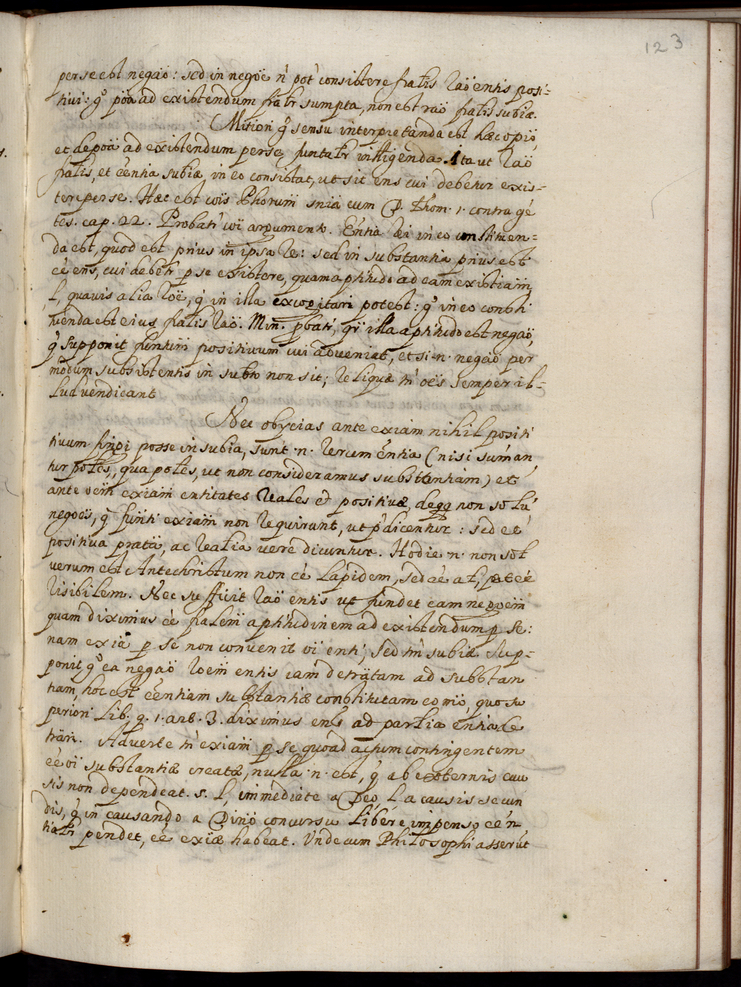 123
per se est negaõ: sed in negõe ñ pot' consistere fralis raõ entis posi-
tiui: gº põa ad existendum fralr sumpta, non est raõ fralis subiæ.
Misiori gº sensu interpretanda est hæc opiõ,
et de põa ad existendum per se funtalr intelligenda. Ita ut raõ
fralis, et ẽentia subiæ in eo consistat, ut sit ens cui debetur exis-
tere per se. Hæc est cõis Phorum snia cum D. Thom. 1. contra gẽ
tes. cap. 22. Probatr cõi argumento. Entia rei in eo constituen-
da est, quod est prius in ipsa re: sed in substantia prius est
ẽe ens, cui debetr p se existere, quam aptitudo ad eam existiam,
l, quauis alia rõe, q̃ in illa excogitari potest: gº in eo consti
tuenda est eius fralis raõ. Min. pbatr, qr illa aptitudo est negaõ,
gº supponit funtum positiuum cui adueniat, etsi n. negaõ per
modum subsistentis in subto non sit; reliquæ tñ oẽs semper il-
lud vendicant.
Nec obijcias ante exiam nihil positi
tiuum fingi posse in subia, sunt n. rerum ẽntia (nisi suman
tur potẽs, qua potẽs, ut non consideramus substantiam) et
ante oẽm exiam entitates reales et positiuæ, non solũ
negoẽs, q̃ funti exiam non requirunt, ut p dicentur: sed et
positiua prata, ac realia vere dicuntur. Hodie n. non sol
verum est Antechristum non ẽe Lapidem, sed ẽe a l, p ẽe
risibilem. Nec sufficit raõ entis ut fundet eam negoẽm
quam diximus ẽe fralem aptitudinem ad existendum p se:
nam exia p se non conuenit oi enti, sed tñ subiæ. Sup-
ponit gº ea negaõ roẽm entis iam detratam ad substan
tiam, hoc est ẽentiam substantiæ constitutam eo mõ, quo su
periori lib. q. 1. ar. 3. diximus ens ad partia ẽntia re
trari. Aduerte tñ exiam p se quoad actum contingentem
ẽe oi substantiæ creatæ, nulla n. est, q̃ ab externis cau
sis non dependeat. s. l, immediate a Deo, l a causis secun
dis, q̃ in causando a Diuino concursu libere impenso ẽen
tialr pendet, ẽe exiæ habeat. Vnde cum Philosophi asserut